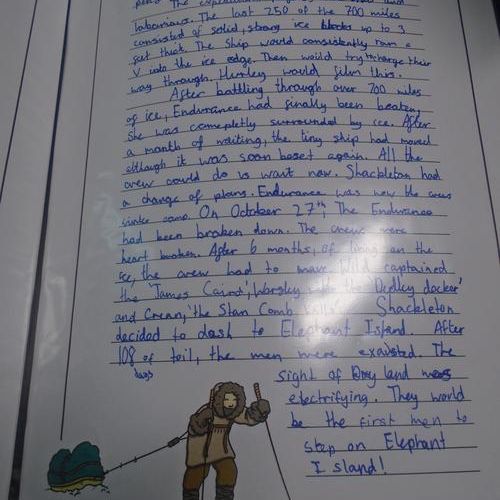 laborious. The last 250 of the 700 miles
consisted of solid, strong ice blocks up to 3
feet thick. The Ship would consistently ram a
V into the ice edge. Then would try to charge their
way through. Hurley would film this.
After battling through over 700 miles
of ice, Endurance had finally been beaten,
She was completly surrounded by ice. After
a month of waiting, the tiny ship had moved
although it was soon beset again. All the
crew could do is want now. Shackleton had
a change of plans. Endurance was now the crews
winter camp. On October 27th, The Endurance
had been broken down. The crews were
heart broken. After 6 months, of living on the
ice, the crew had to move. Wild captained
the 'James Caird', Worsley the Dudley docker'
and Crean, 'the Stan Comb Shackleton
decided to dash to Elephant Island. After
108 of toil, the men were exausted. The
days
sight of Dry land was
electrifying. They would
be the first men to
step on Elephant
Island!